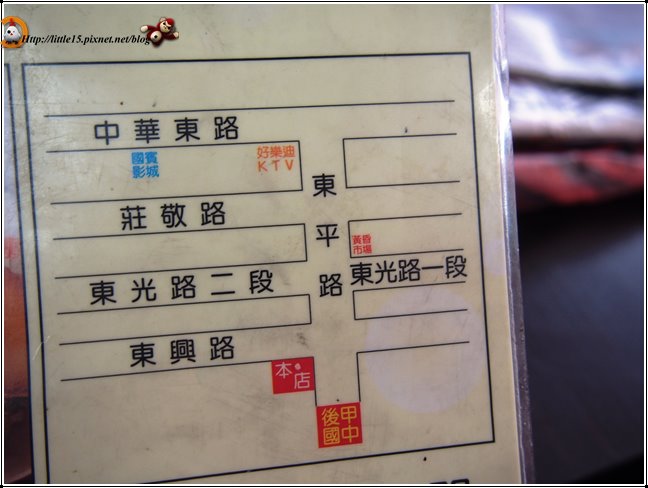 Http://little15.pixnet.net/blog
中華東路
國賓
影城
好樂迪
KTV
東平路
莊敬路
黃昏
市場
東光路二段
東光路一段
東興路
本店
後甲
國中